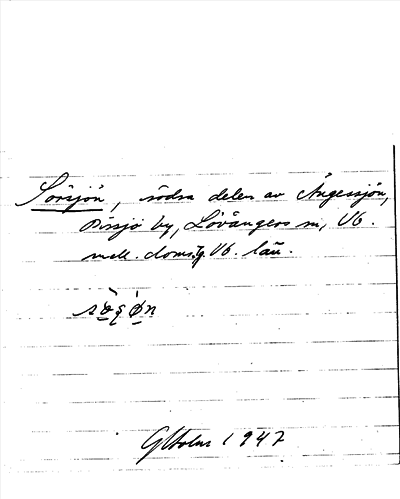 Sörsjön, södra delen av Ångessjön,
Önsjö by, Lövångers sn, Vb.
mell. doms. Vb. län.
G Holm 1947